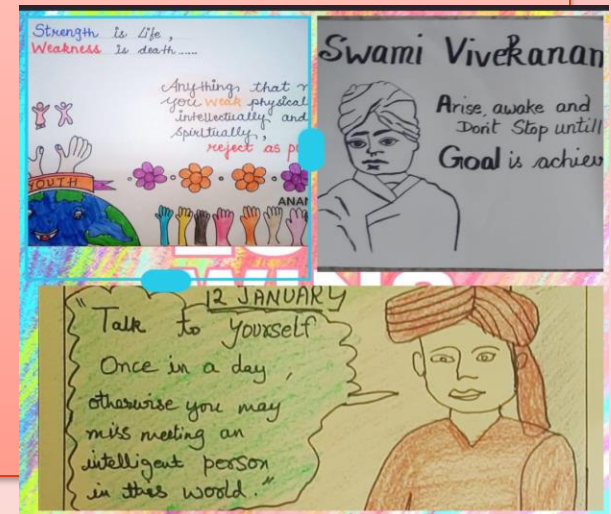 Strength is Life,
Weakness Is death.....
Anything that
you weak physical
intellectually and
Spiritually,
reject as
YOUTH
Swami Vivekanan
Arise, awake and
Don't Stop untill
Goal is achiev
12 JANUARY
"Talk to yourself
Once in a day,
otherwise you may
miss meeting an
intelligent person
in this world."